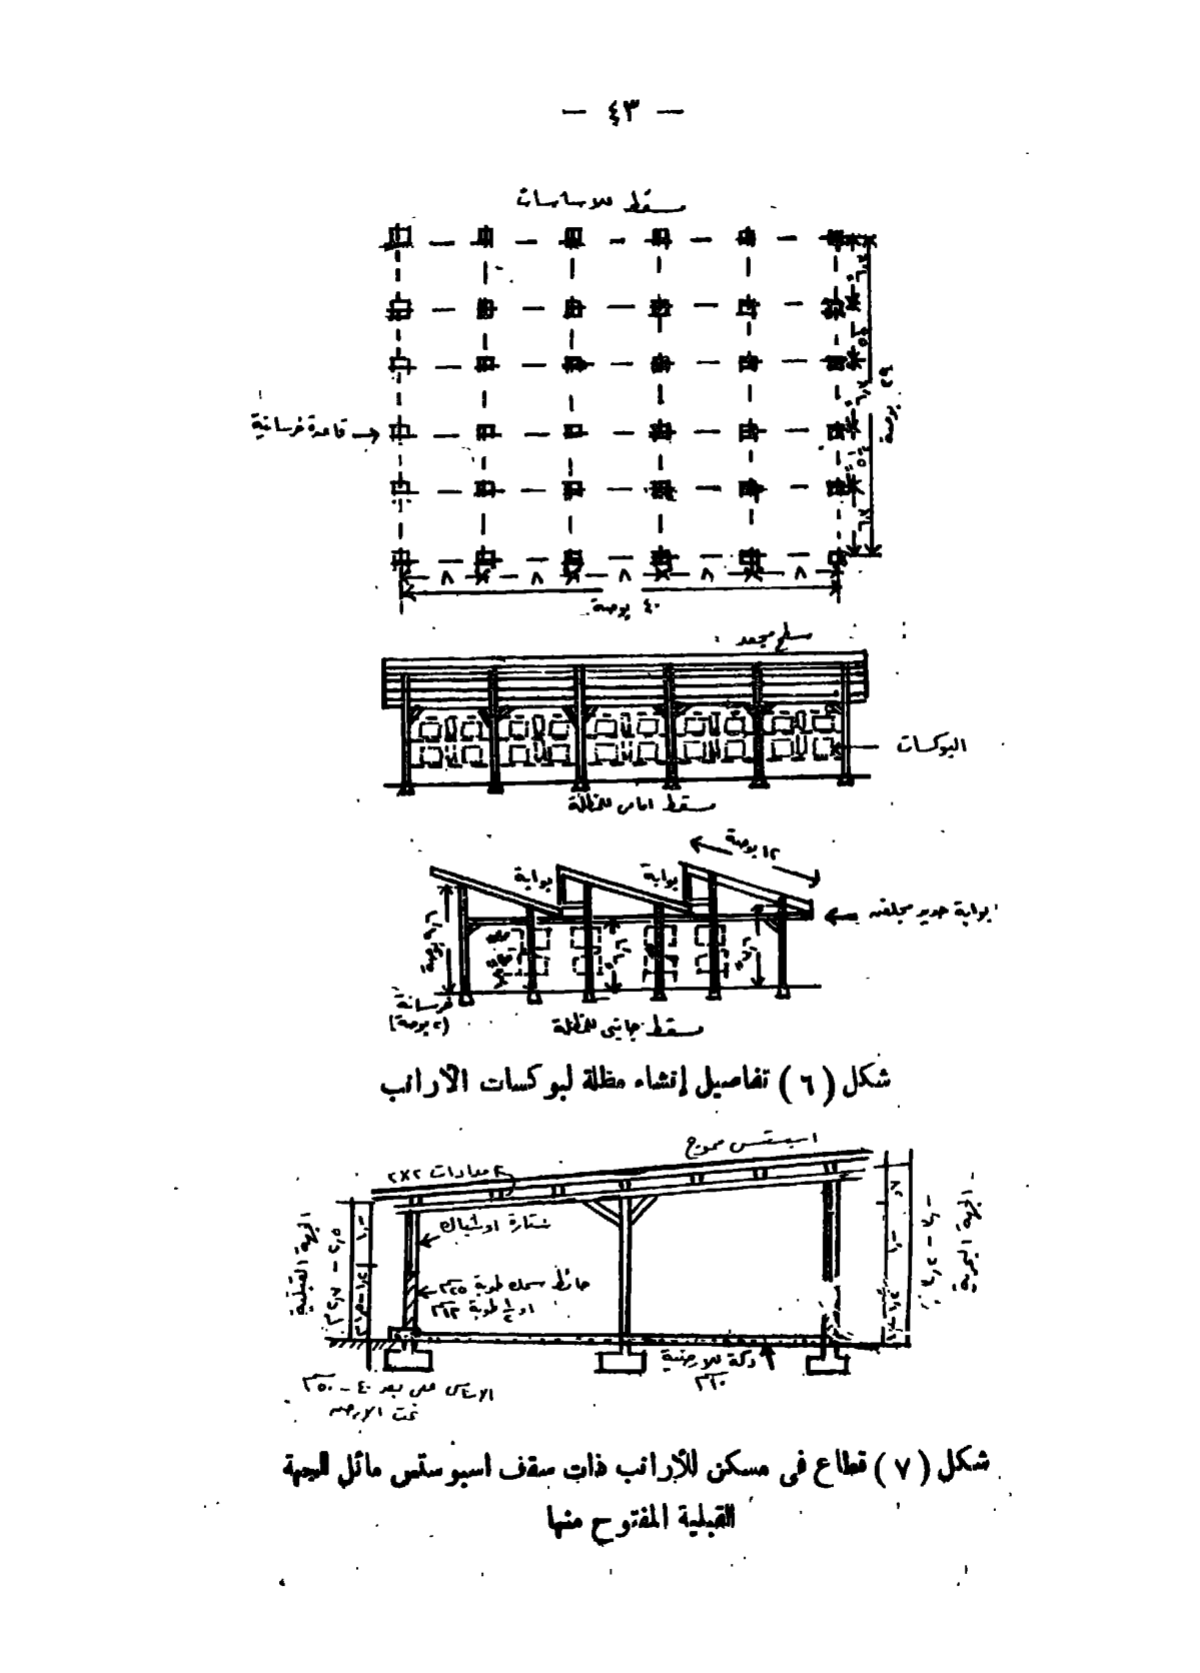 — ٤٣ —
مسقط للاساسات
قاعدة خرسانية
٢٩ بوصة
٨ ٨ ٨ ٨ ٨
٤٠ بوصة
سطح مجعد
البوكسات
مسقط امامى للمظلة
١٢ بوصة
بوابة
بوابة
بوابة حديد مجلفنه
خرسانة
(٢ بوصة)
مسقط جانبى للمظلة
شكل (٦) تفاصيل إنشاء مظلة لبوكسات الأرانب
اسبستس مموج
مدادات ٢×٢
ستارة اوشباك
حائط سمك طوبة ٢٥سم
او ١/٢ طوبة ١٢سم
الجهة القبلية
الجهة البحرية
دكة للارضية
١٠سم
الاساس على بعد ٤٠ – ٥٠سم
تحت الارض
شكل (٧) قطاع فى مسكن للأرانب ذات سقف اسبوستس مائل للجهة
القبلية المفتوح منها